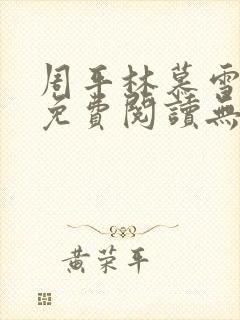 周平林慕雪
免費閱讀無
黄荣平